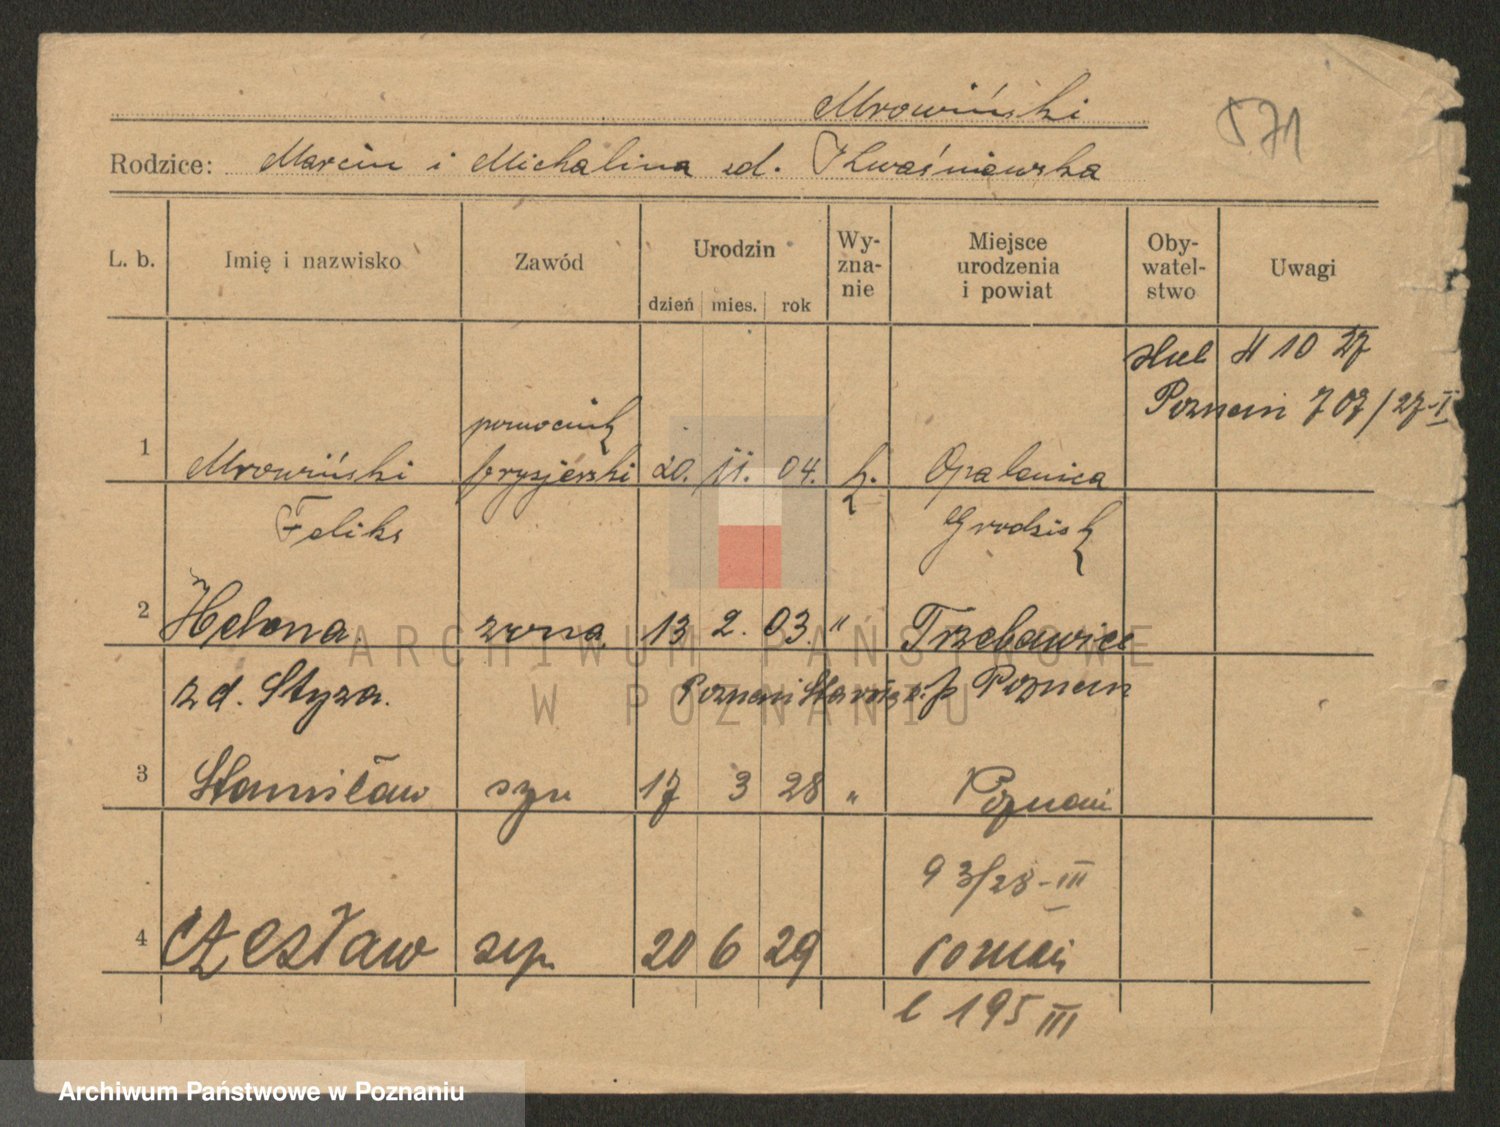 Mrowiński
571
Rodzice: Marcin i Michalina zd. Kwaśniewska
L. b. Imię i nazwisko Zawód Urodzin dzień mies. rok Wy-zna-nie Miejsce urodzenia i powiat Oby-watel-stwo Uwagi
10 27
Poznań 707/27-I
pomocnik
1 Mrowiński fryzjerski 20. 11. 04. k. Opalenica
Feliks Grodzisk
2 Helena żona 13 2. 03. " Trzebawice
zd. Styza. Poznań p Poznań
3 Stanisław syn 17 3 28 " Poznań
93/28-III
4 Czesław syn 20 6 29 Poznań
195 III
ARCHIWUM PAŃSTWOWE
W POZNANIU
Archiwum Państwowe w Poznaniu